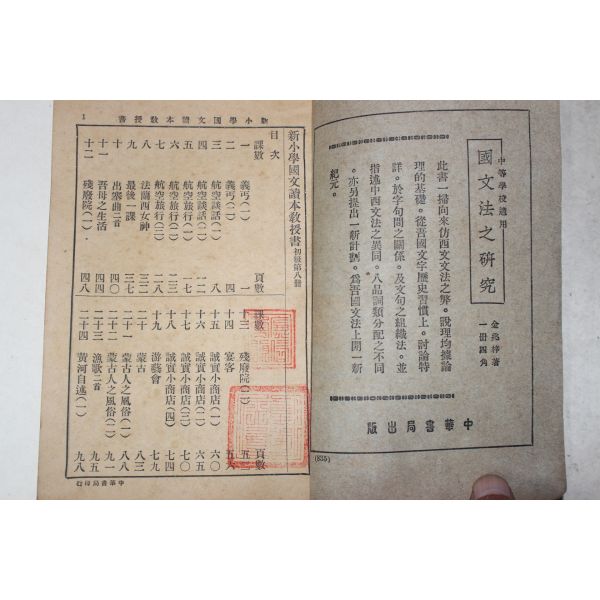 中等學校適用
國文法之研究
金兆梓著
一冊四角
此書一掃向來仿西文文法之弊。說理均據論
理的基礎。從吾國文字歷史習慣上。討論特
詳。於字句間之關係。及文句之組織法。並
指述中西文法之異同。八品詞類分配之不同
。亦另提出一新計劃。爲吾國文法上開一新
紀元。
中華書局出版
(835)
新小學國文讀本教授書 1
新小學國文讀本教授書 初級第八冊
目次
課數 頁數
一 義丐(一) 一
二 義丐(二) 四
三 航空談話(一) 八
四 航空談話(二) 一二
五 航空旅行(一) 一七
六 航空旅行(二) 二一
七 航空旅行(三) 二八
八 法蘭西女神 三二
九 最後一課 三七
十 出塞曲二首 四〇
十一 吾母之生活 四四
十二 殘廢院(一) 四八
課數 頁數
十三 殘廢院(二) 五二
十四 宴客 五六
十五 誠實小商店(一) 六〇
十六 誠實小商店(二) 六五
十七 誠實小商店(三) 七〇
十八 誠實小商店(四) 七四
十九 游藝會 七九
二十 蒙古 八三
二十一 蒙古人之風俗(一) 八八
二十二 蒙古人之風俗(二) 九一
二十三 漁歌二首 九五
二十四 黃河自述(一) 九八
中華書局印行